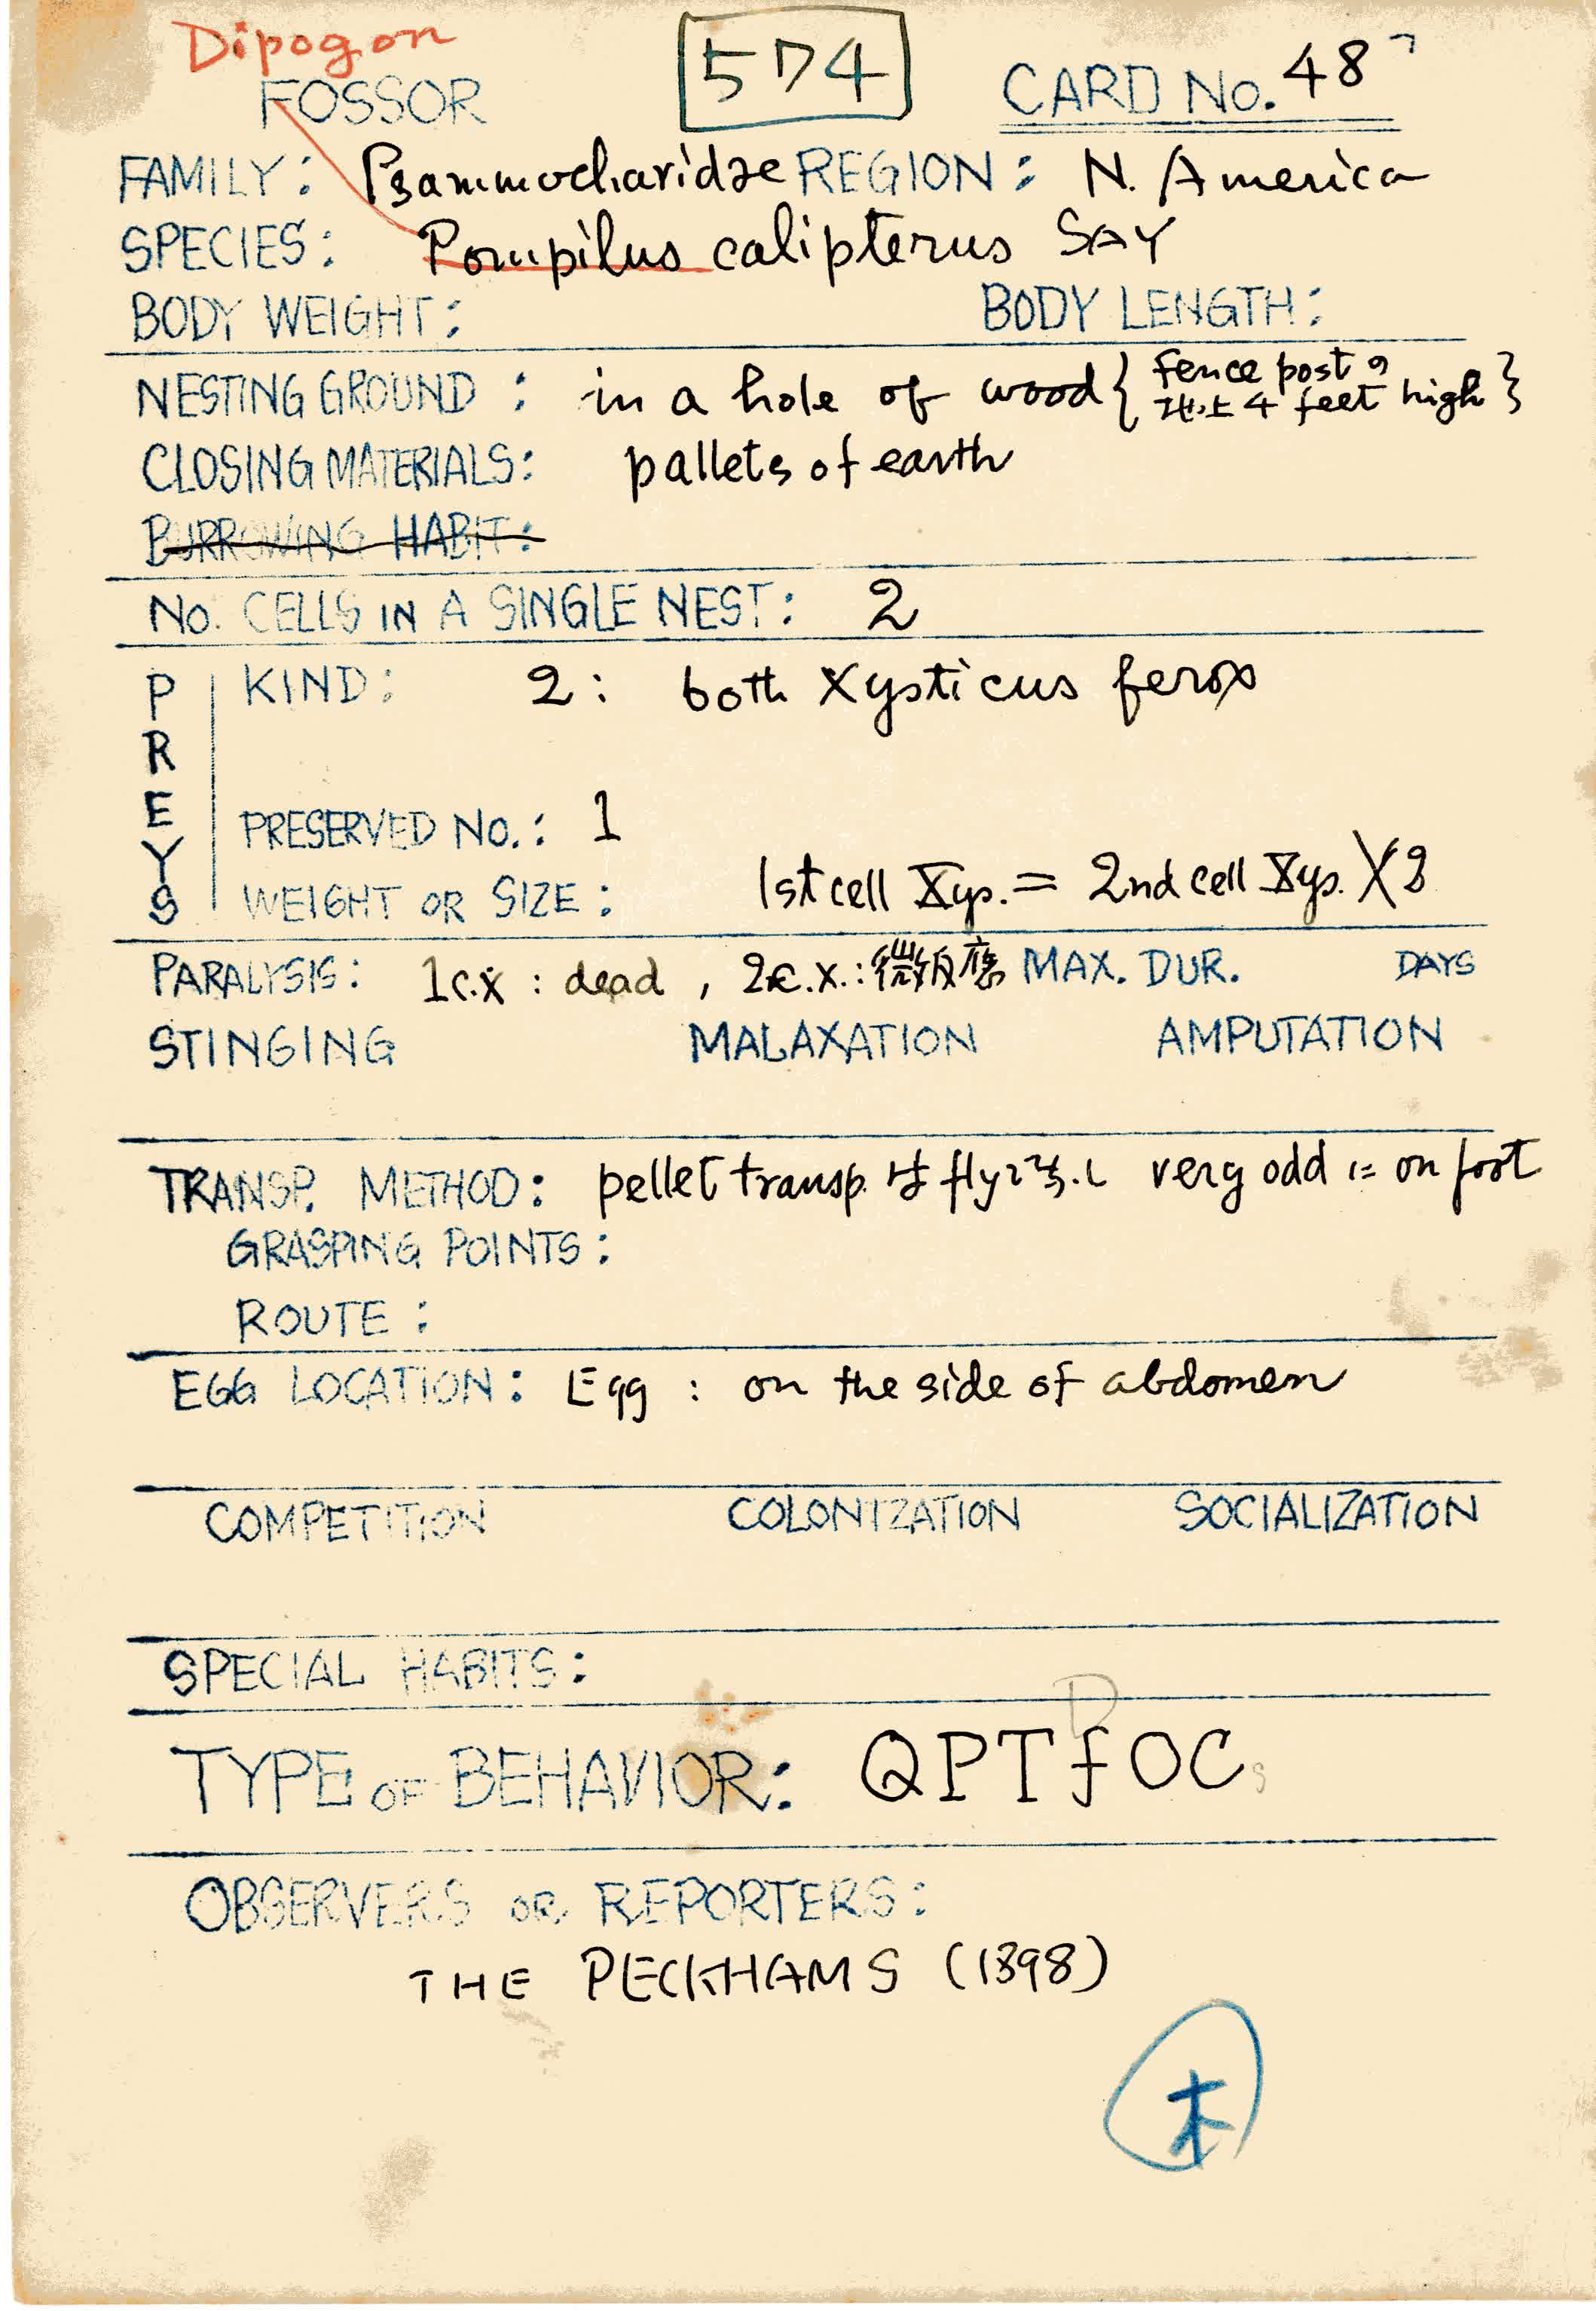 Dipogon
FOSSOR 574 CARD No. 48
FAMILY: Psammocharidae REGION: N. America
SPECIES: Pompilus calipterus SAY
BODY WEIGHT: BODY LENGTH:
NESTING GROUND: in a hole of wood { fence post の
地上 4 feet high }
CLOSING MATERIALS: pallets of earth
BURROWING HABIT:
No. CELLS IN A SINGLE NEST: 2
PREYS
KIND: 2: both Xysticus ferox
PRESERVED No.: 1
WEIGHT OR SIZE: 1st cell Xys. = 2nd cell Xys. X
PARALYSIS: 1c.x : dead, 2c.x.: 微反応 MAX. DUR. DAYS
STINGING MALAXATION AMPUTATION
TRANSP. METHOD: pellet transp. は fly very odd on foot
GRASPING POINTS:
ROUTE:
EGG LOCATION: Egg: on the side of abdomen
COMPETITION COLONIZATION SOCIALIZATION
SPECIAL HABITS:
D
TYPE OF BEHAVIOR: QPTfOC
OBSERVERS OR REPORTERS:
THE PECKHAMS (1898)
木